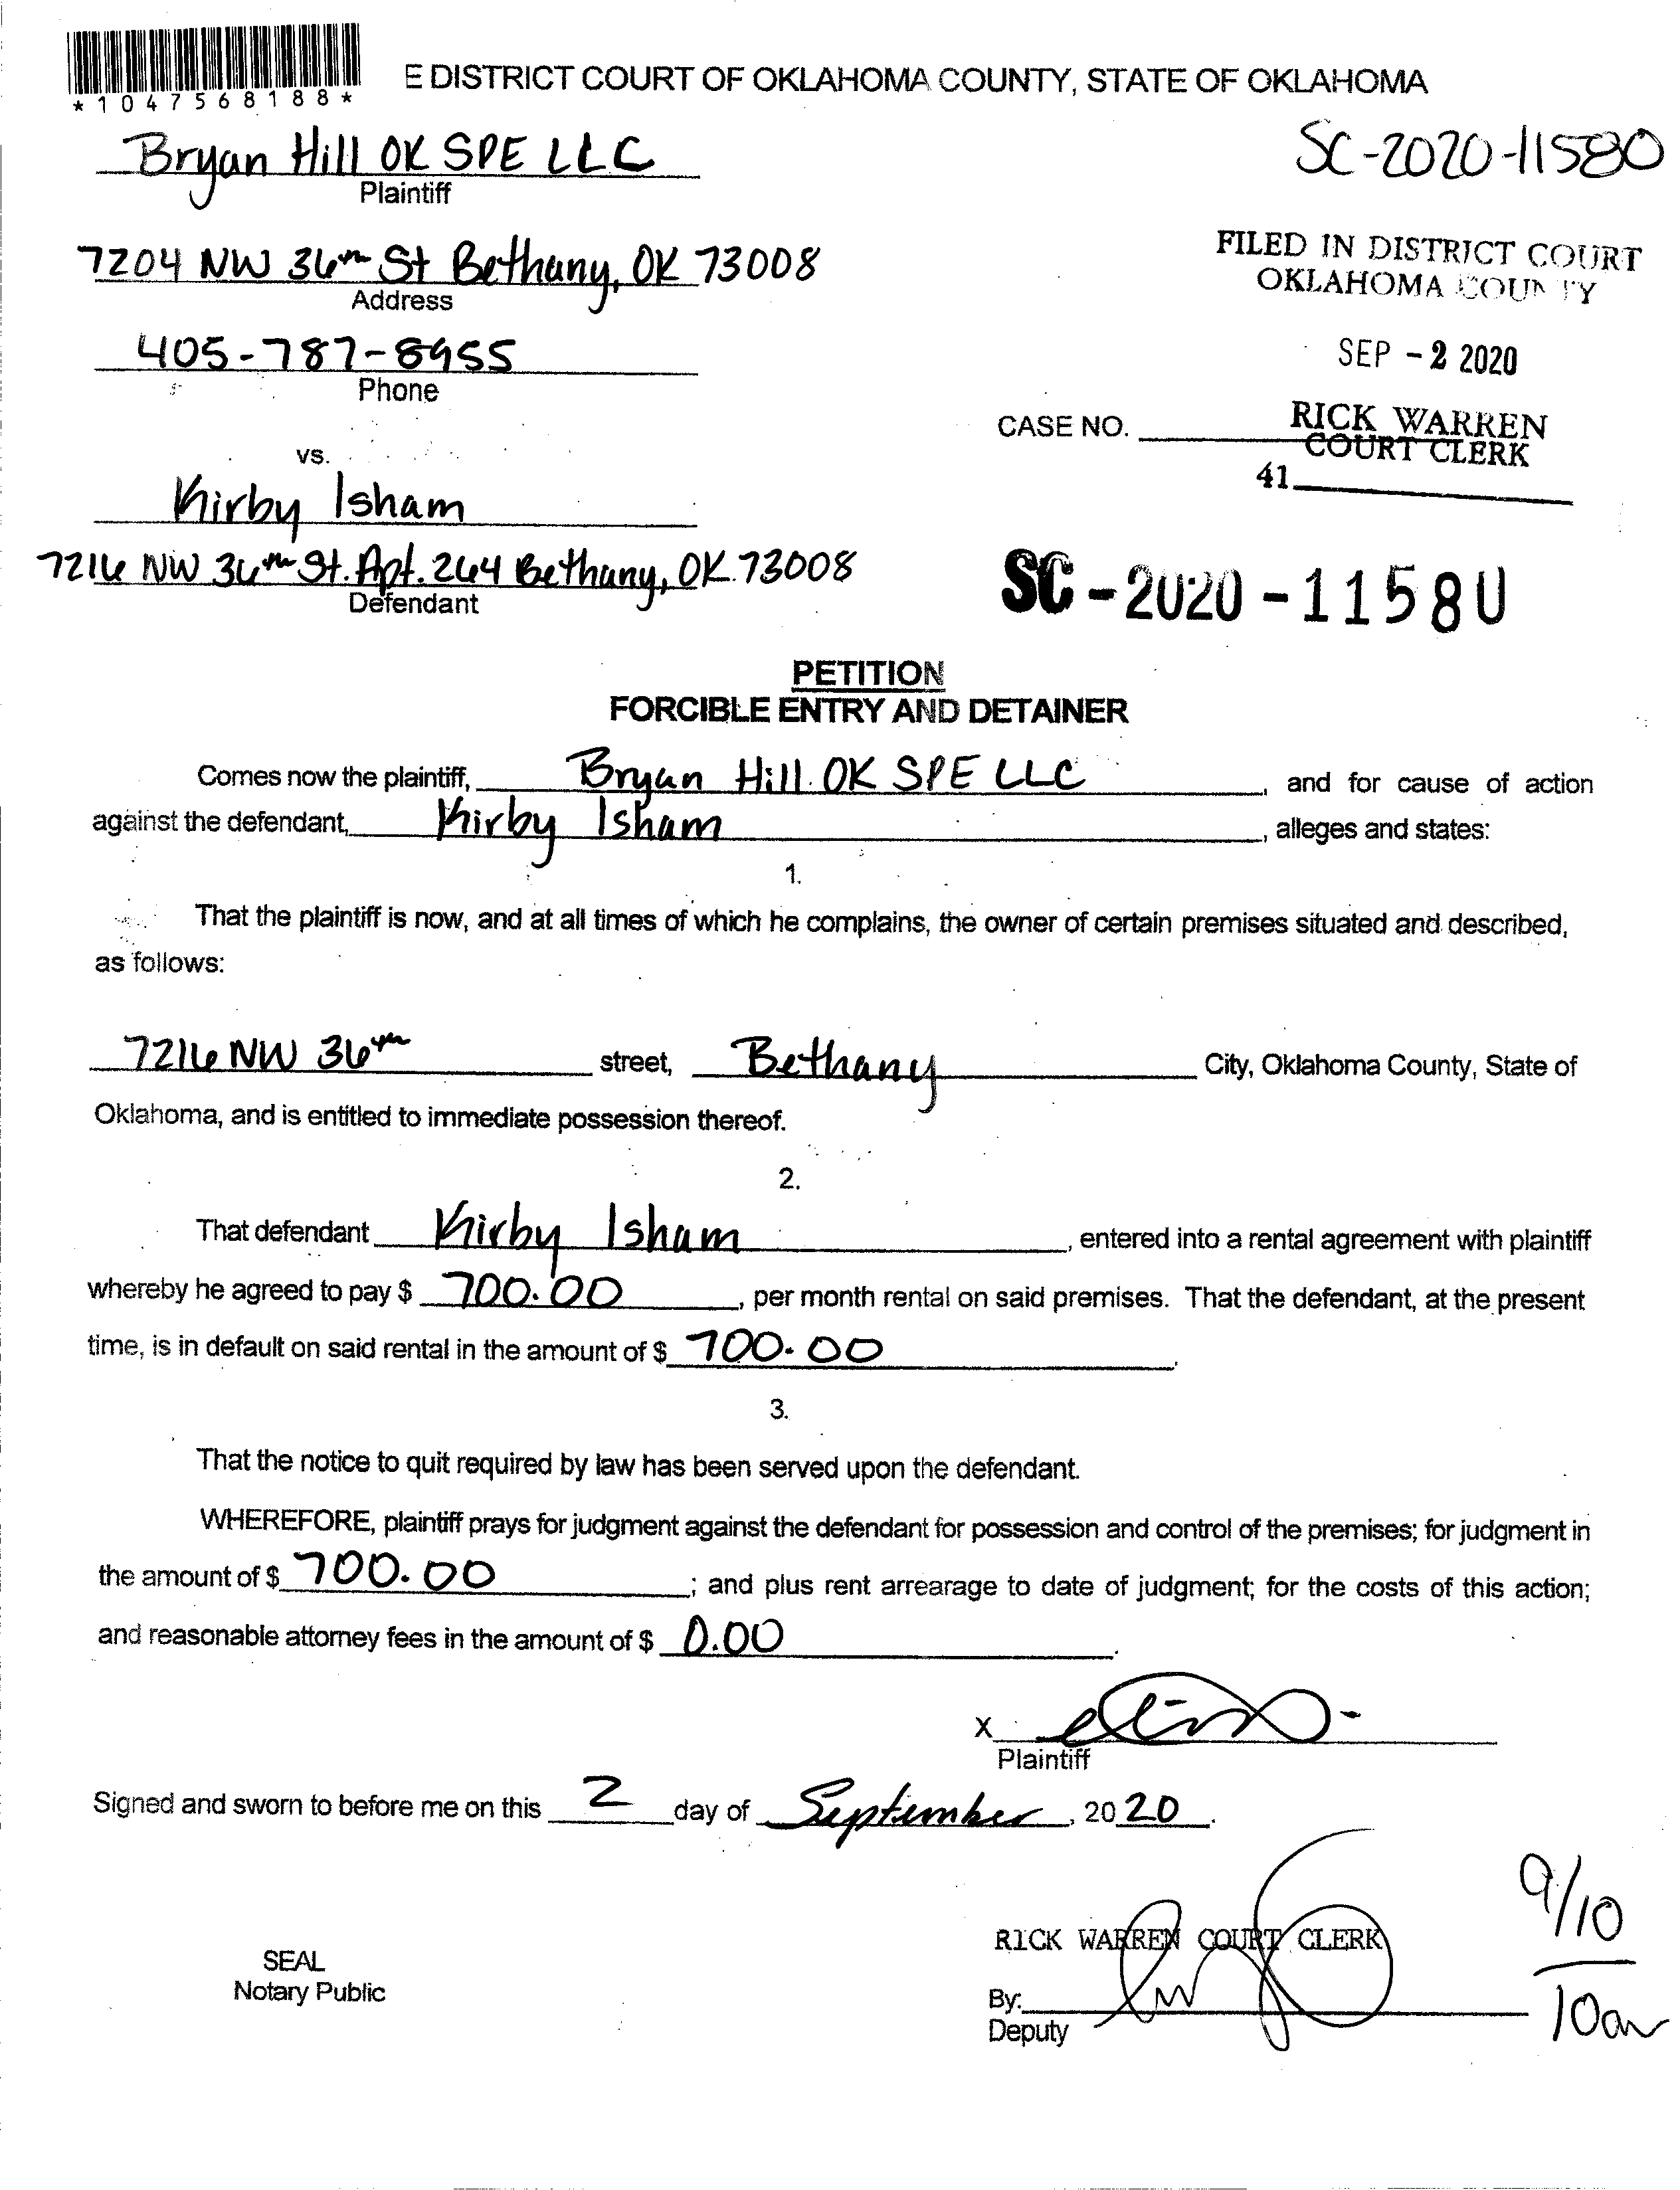 *1047568188*
E DISTRICT COURT OF OKLAHOMA COUNTY, STATE OF OKLAHOMA
Bryan Hill OK SPE LLC
Plaintiff
SC-2020-11580
7204 NW 36th St Bethany, OK 73008
Address
FILED IN DISTRICT COURT
OKLAHOMA COUNTY
405-787-8955
Phone
SEP - 2 2020
CASE NO.
RICK WARREN
COURT CLERK
41
vs.
Kirby Isham
7216 NW 36th St. Apt. 264 Bethany, OK 73008
Defendant
SC - 2020 - 11580
PETITION
FORCIBLE ENTRY AND DETAINER
Comes now the plaintiff, Bryan Hill OK SPE LLC, and for cause of action
against the defendant, Kirby Isham, alleges and states:
1.
That the plaintiff is now, and at all times of which he complains, the owner of certain premises situated and described,
as follows:
7216 NW 36th street, Bethany City, Oklahoma County, State of
Oklahoma, and is entitled to immediate possession thereof.
2.
That defendant Kirby Isham, entered into a rental agreement with plaintiff
whereby he agreed to pay $ 700.00, per month rental on said premises. That the defendant, at the present
time, is in default on said rental in the amount of $ 700.00.
3.
That the notice to quit required by law has been served upon the defendant.
WHEREFORE, plaintiff prays for judgment against the defendant for possession and control of the premises; for judgment in
the amount of $ 700.00; and plus rent arrearage to date of judgment; for the costs of this action;
and reasonable attorney fees in the amount of $ 0.00.
X
Plaintiff
Signed and sworn to before me on this 2 day of September, 2020.
9/10
10am
RICK WARREN COURT CLERK
SEAL
Notary Public
By:
Deputy